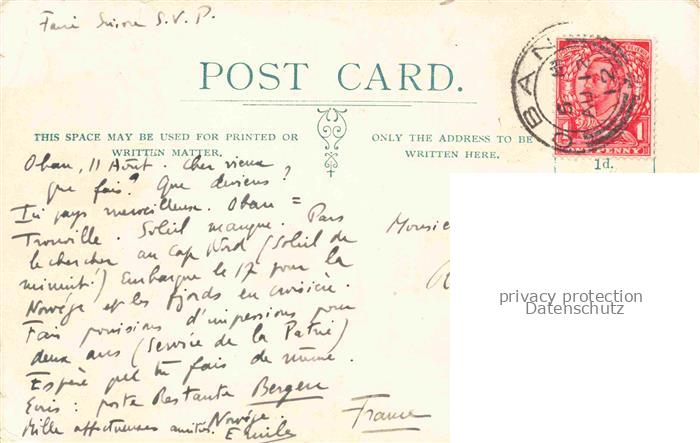 Faire Suivre S.V.P.
POST CARD.
THIS SPACE MAY BE USED FOR PRINTED OR
WRITTEN MATTER.
ONLY THE ADDRESS TO BE
WRITTEN HERE.
OBAN
AU 12
12
PENNY
1d.
Oban, 11 Août. Cher vieux
que fais? Que deviens?
Ici pays merveilleux. Oban =
Trouville. Soleil manque. Pars
le chercher au Cap Nord (Soleil de
minuit!) Embarque le 17 pour la
Norvège et les fjords en croisière.
Fais provisions d'impressions pour
deux ans (Service de la Patrie)
Espère que tu fais de même.
Ecris: poste Restante Bergen
Norvège.
Mille affectueuses amitiés. Emile
Monsie
France
privacy protection
Datenschutz